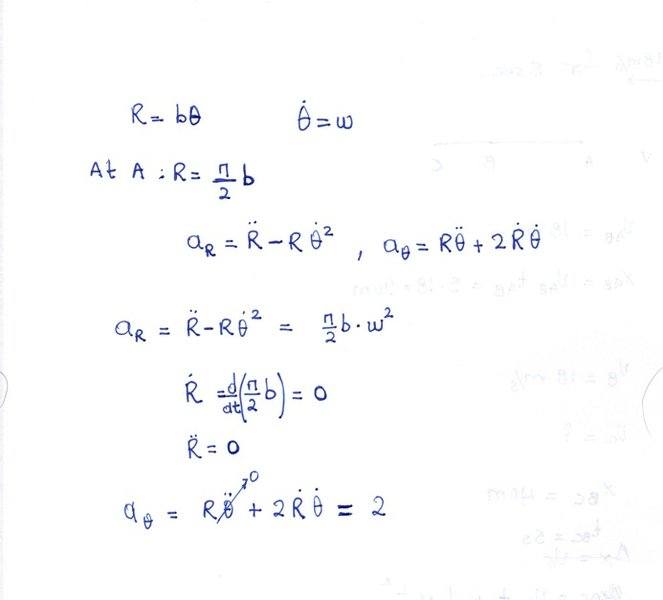 R = bθ θ̇ = w
At A : R = π/2 b
a_R = R̈ - R θ̇² , a_θ = Rθ̈ + 2 Ṙ θ̇
a_R = R̈ - Rθ̇² = π/2 b · w²
Ṙ = d/dt (π/2 b) = 0
R̈ = 0
a_θ = Rθ̈ ↗0 + 2 Ṙ θ̇ = 2